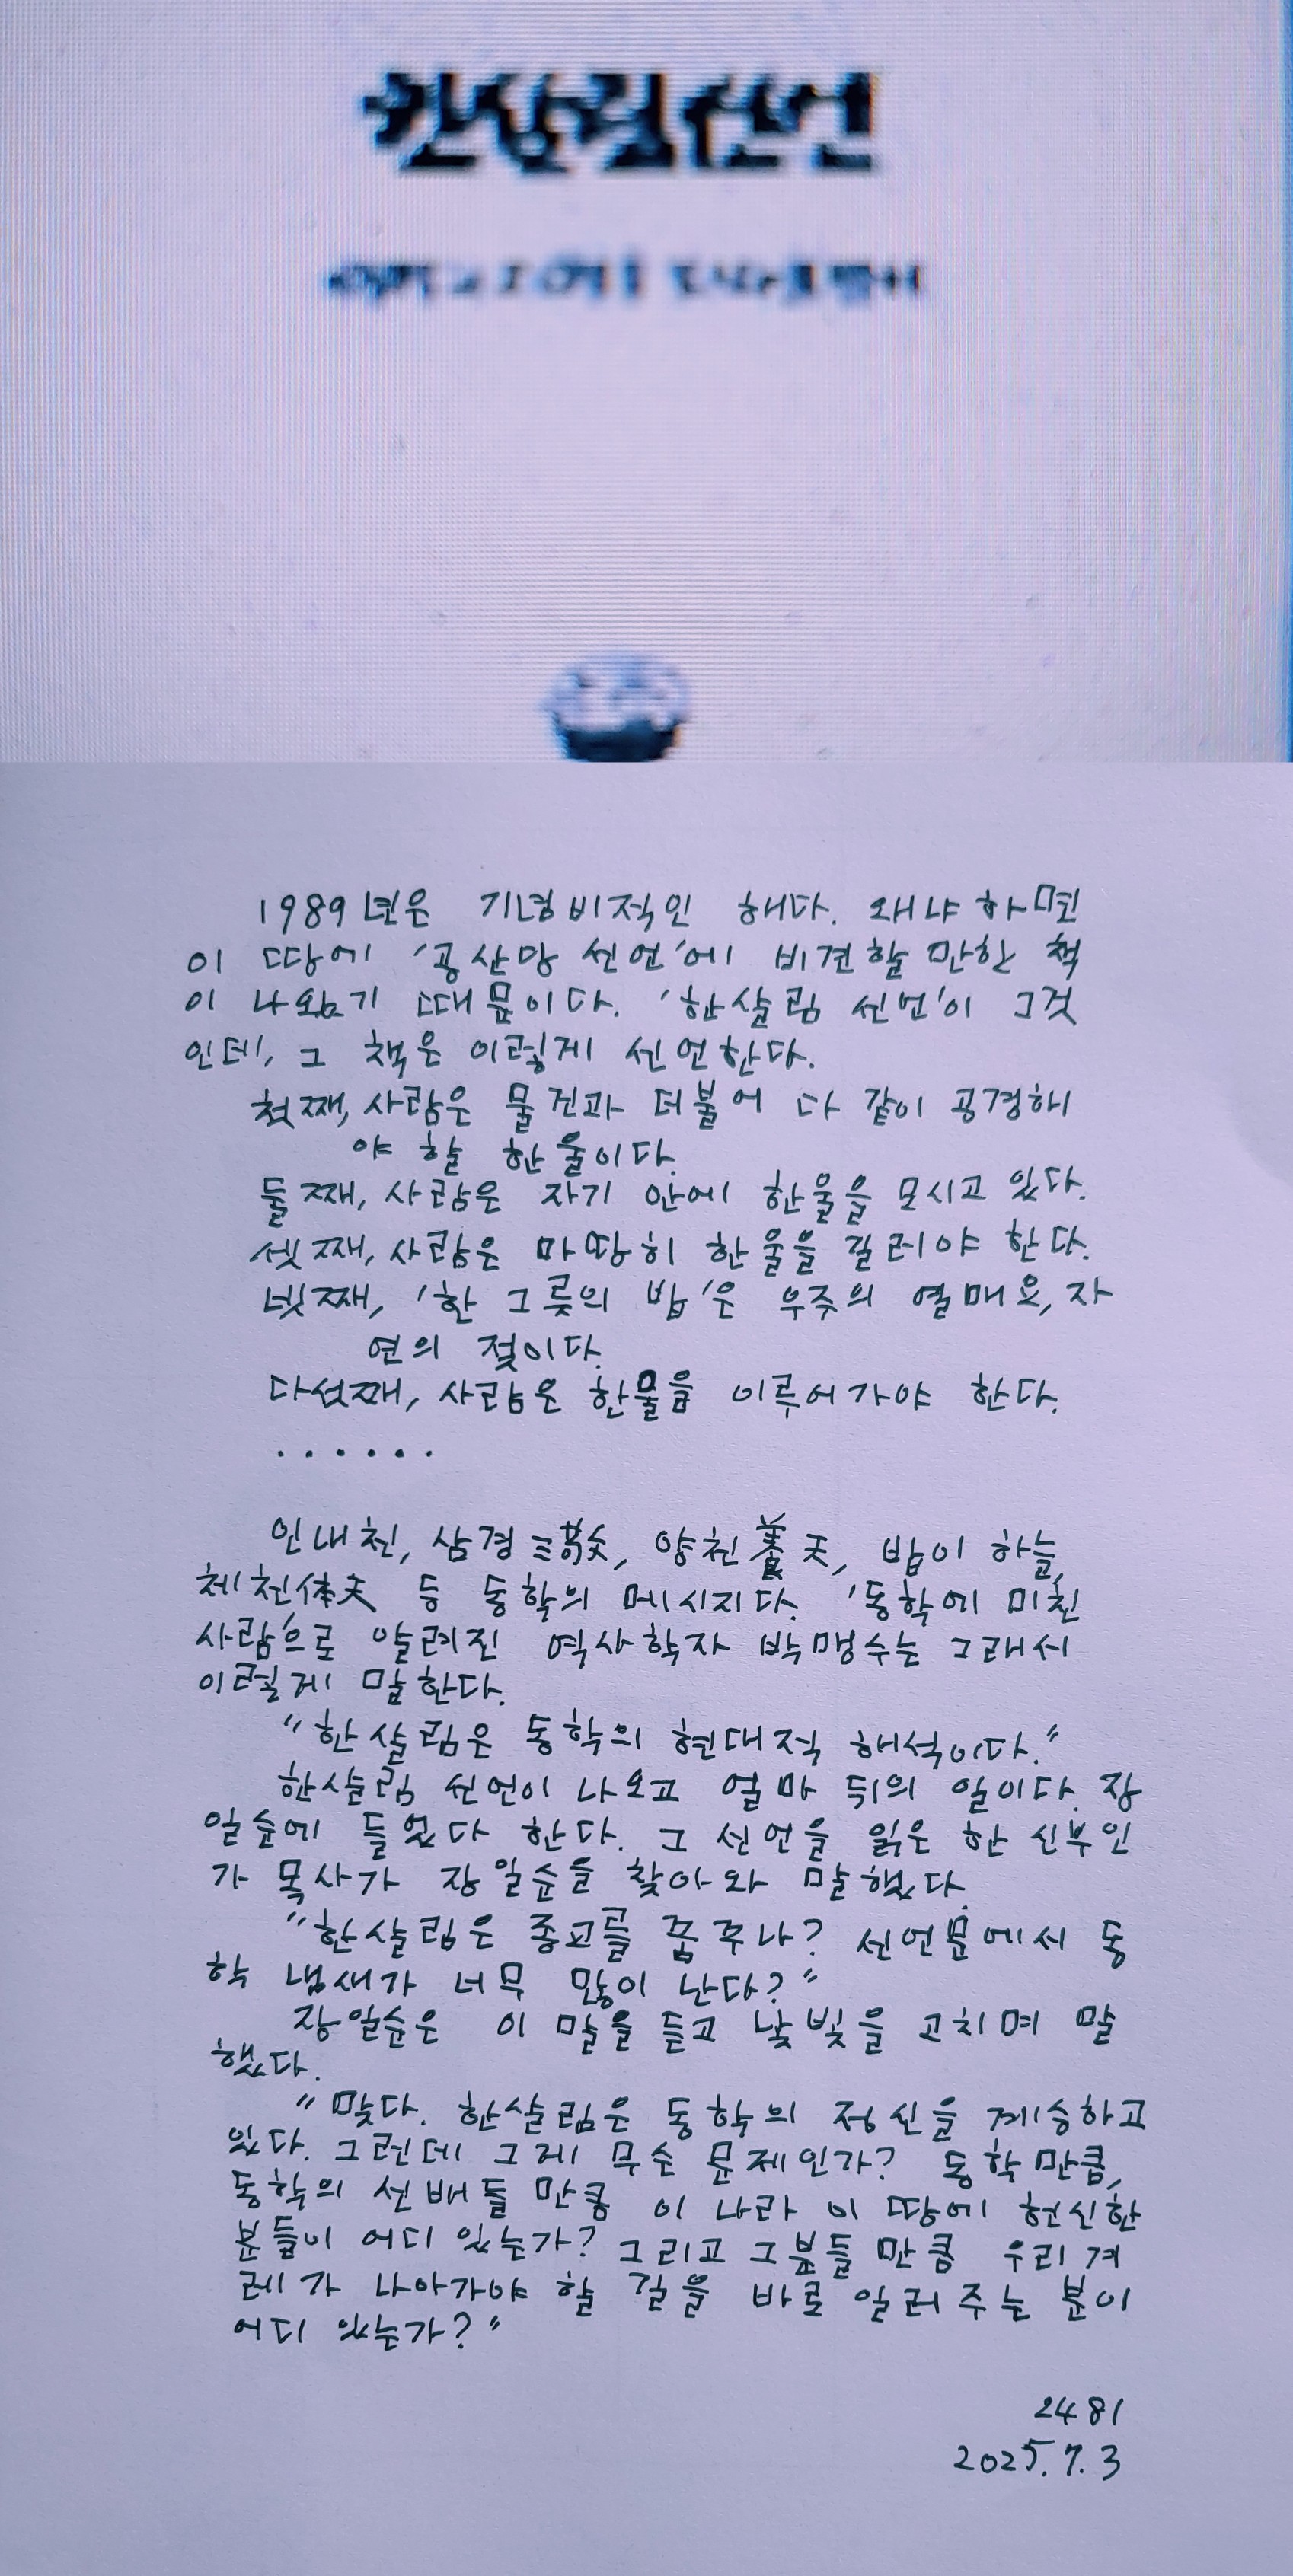 한살림선언
1989년은 기념비적인 해다. 왜냐하면
이 땅에 '공산당 선언'에 비견할 만한 책
이 나왔기 때문이다. '한살림 선언'이 그것
인데, 그 책은 이렇게 선언한다.
첫째, 사람은 물건과 더불어 다 같이 공경해
야 할 한울이다.
둘째, 사람은 자기 안에 한울을 모시고 있다.
셋째, 사람은 마땅히 한울을 길러야 한다.
넷째, '한 그릇의 밥'은 우주의 열매요, 자
연의 젖이다.
다섯째, 사람은 한울을 이루어가야 한다.
......
인내천, 삼경三敬, 양천養天, 밥이 하늘,
체천体天 등 동학의 메시지다. '동학에 미친
사람'으로 알려진 역사학자 박맹수는 그래서
이렇게 말한다.
"한살림은 동학의 현대적 해석이다."
한살림 선언이 나오고 얼마 뒤의 일이다. 장
일순에 들었다 한다. 그 선언을 읽은 한 신부인
가 목사가 장일순을 찾아와 말했다.
"한살림은 종교를 꿈꾸나? 선언문에서 동
학 냄새가 너무 많이 난다?"
장일순은 이 말을 듣고 낯빛을 고치며 말
했다.
"맞다. 한살림은 동학의 정신을 계승하고
있다. 그런데 그게 무슨 문제인가? 동학만큼,
동학의 선배들 만큼 이 나라 이 땅에 헌신한
분들이 어디 있는가? 그리고 그분들 만큼 우리 겨
레가 나아가야 할 길을 바로 일러주는 분이
어디 있는가?"
2481
2025. 7. 3